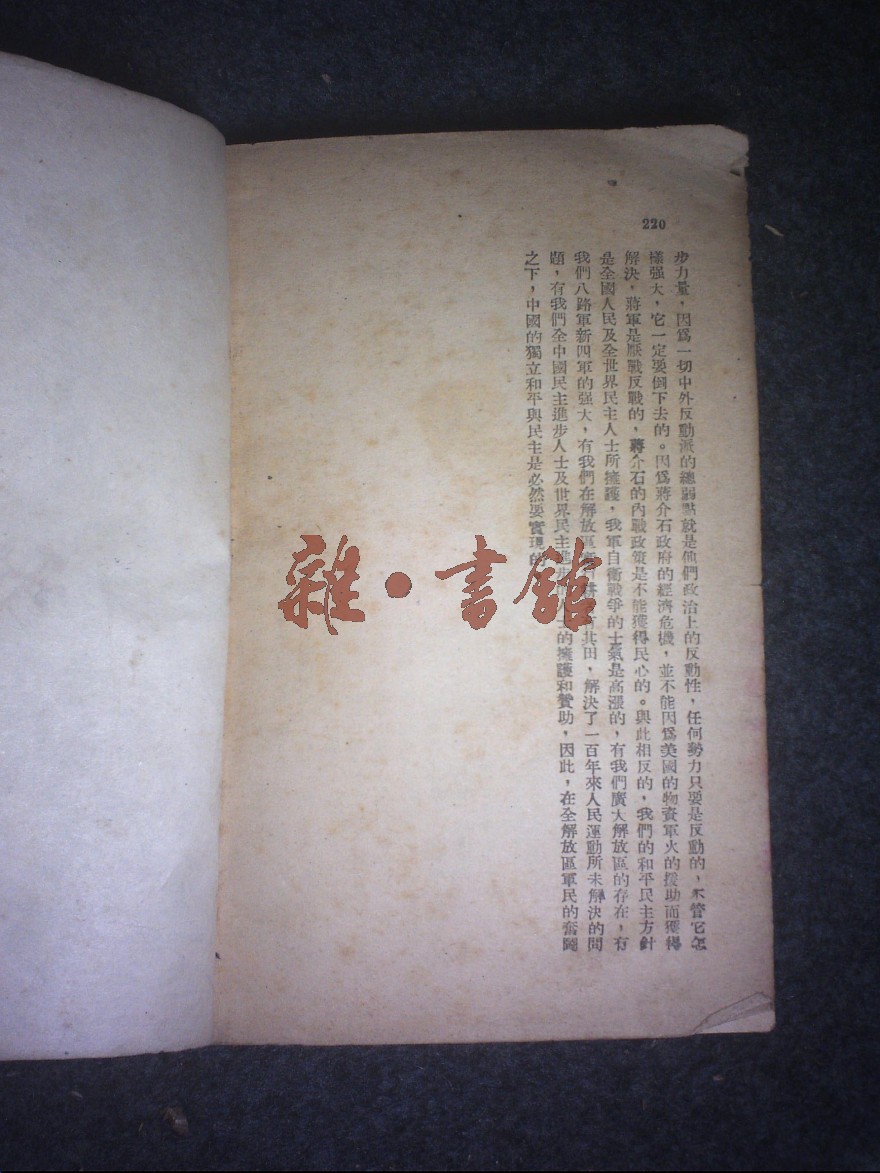 220
步力量，因爲一切中外反動派的總弱點就是他們政治上的反動性，任何勢力只要是反動的，不管它怎
樣强大，它一定要倒下去的。因爲蔣介石政府的經濟危機，並不能因爲美國的物資軍火的援助而獲得
解決，蔣軍是厭戰反戰的，蔣介石的內戰政策是不能獲得民心的。與此相反的，我們的和平民主方針
是全國人民及全世界民主人士所擁護，我軍自衞戰爭的士氣是高漲的，有我們廣大解放區的存在，有
我們八路軍新四軍的强大，有我們在解放區 其田，解決了一百年來人民運動所未解決的問
題，有我們全中國民主進步人士及世界民主進步 的擁護和贊助，因此，在全解放區軍民的奮鬪
之下，中國的獨立和平與民主是必然要實現的
雜·書館